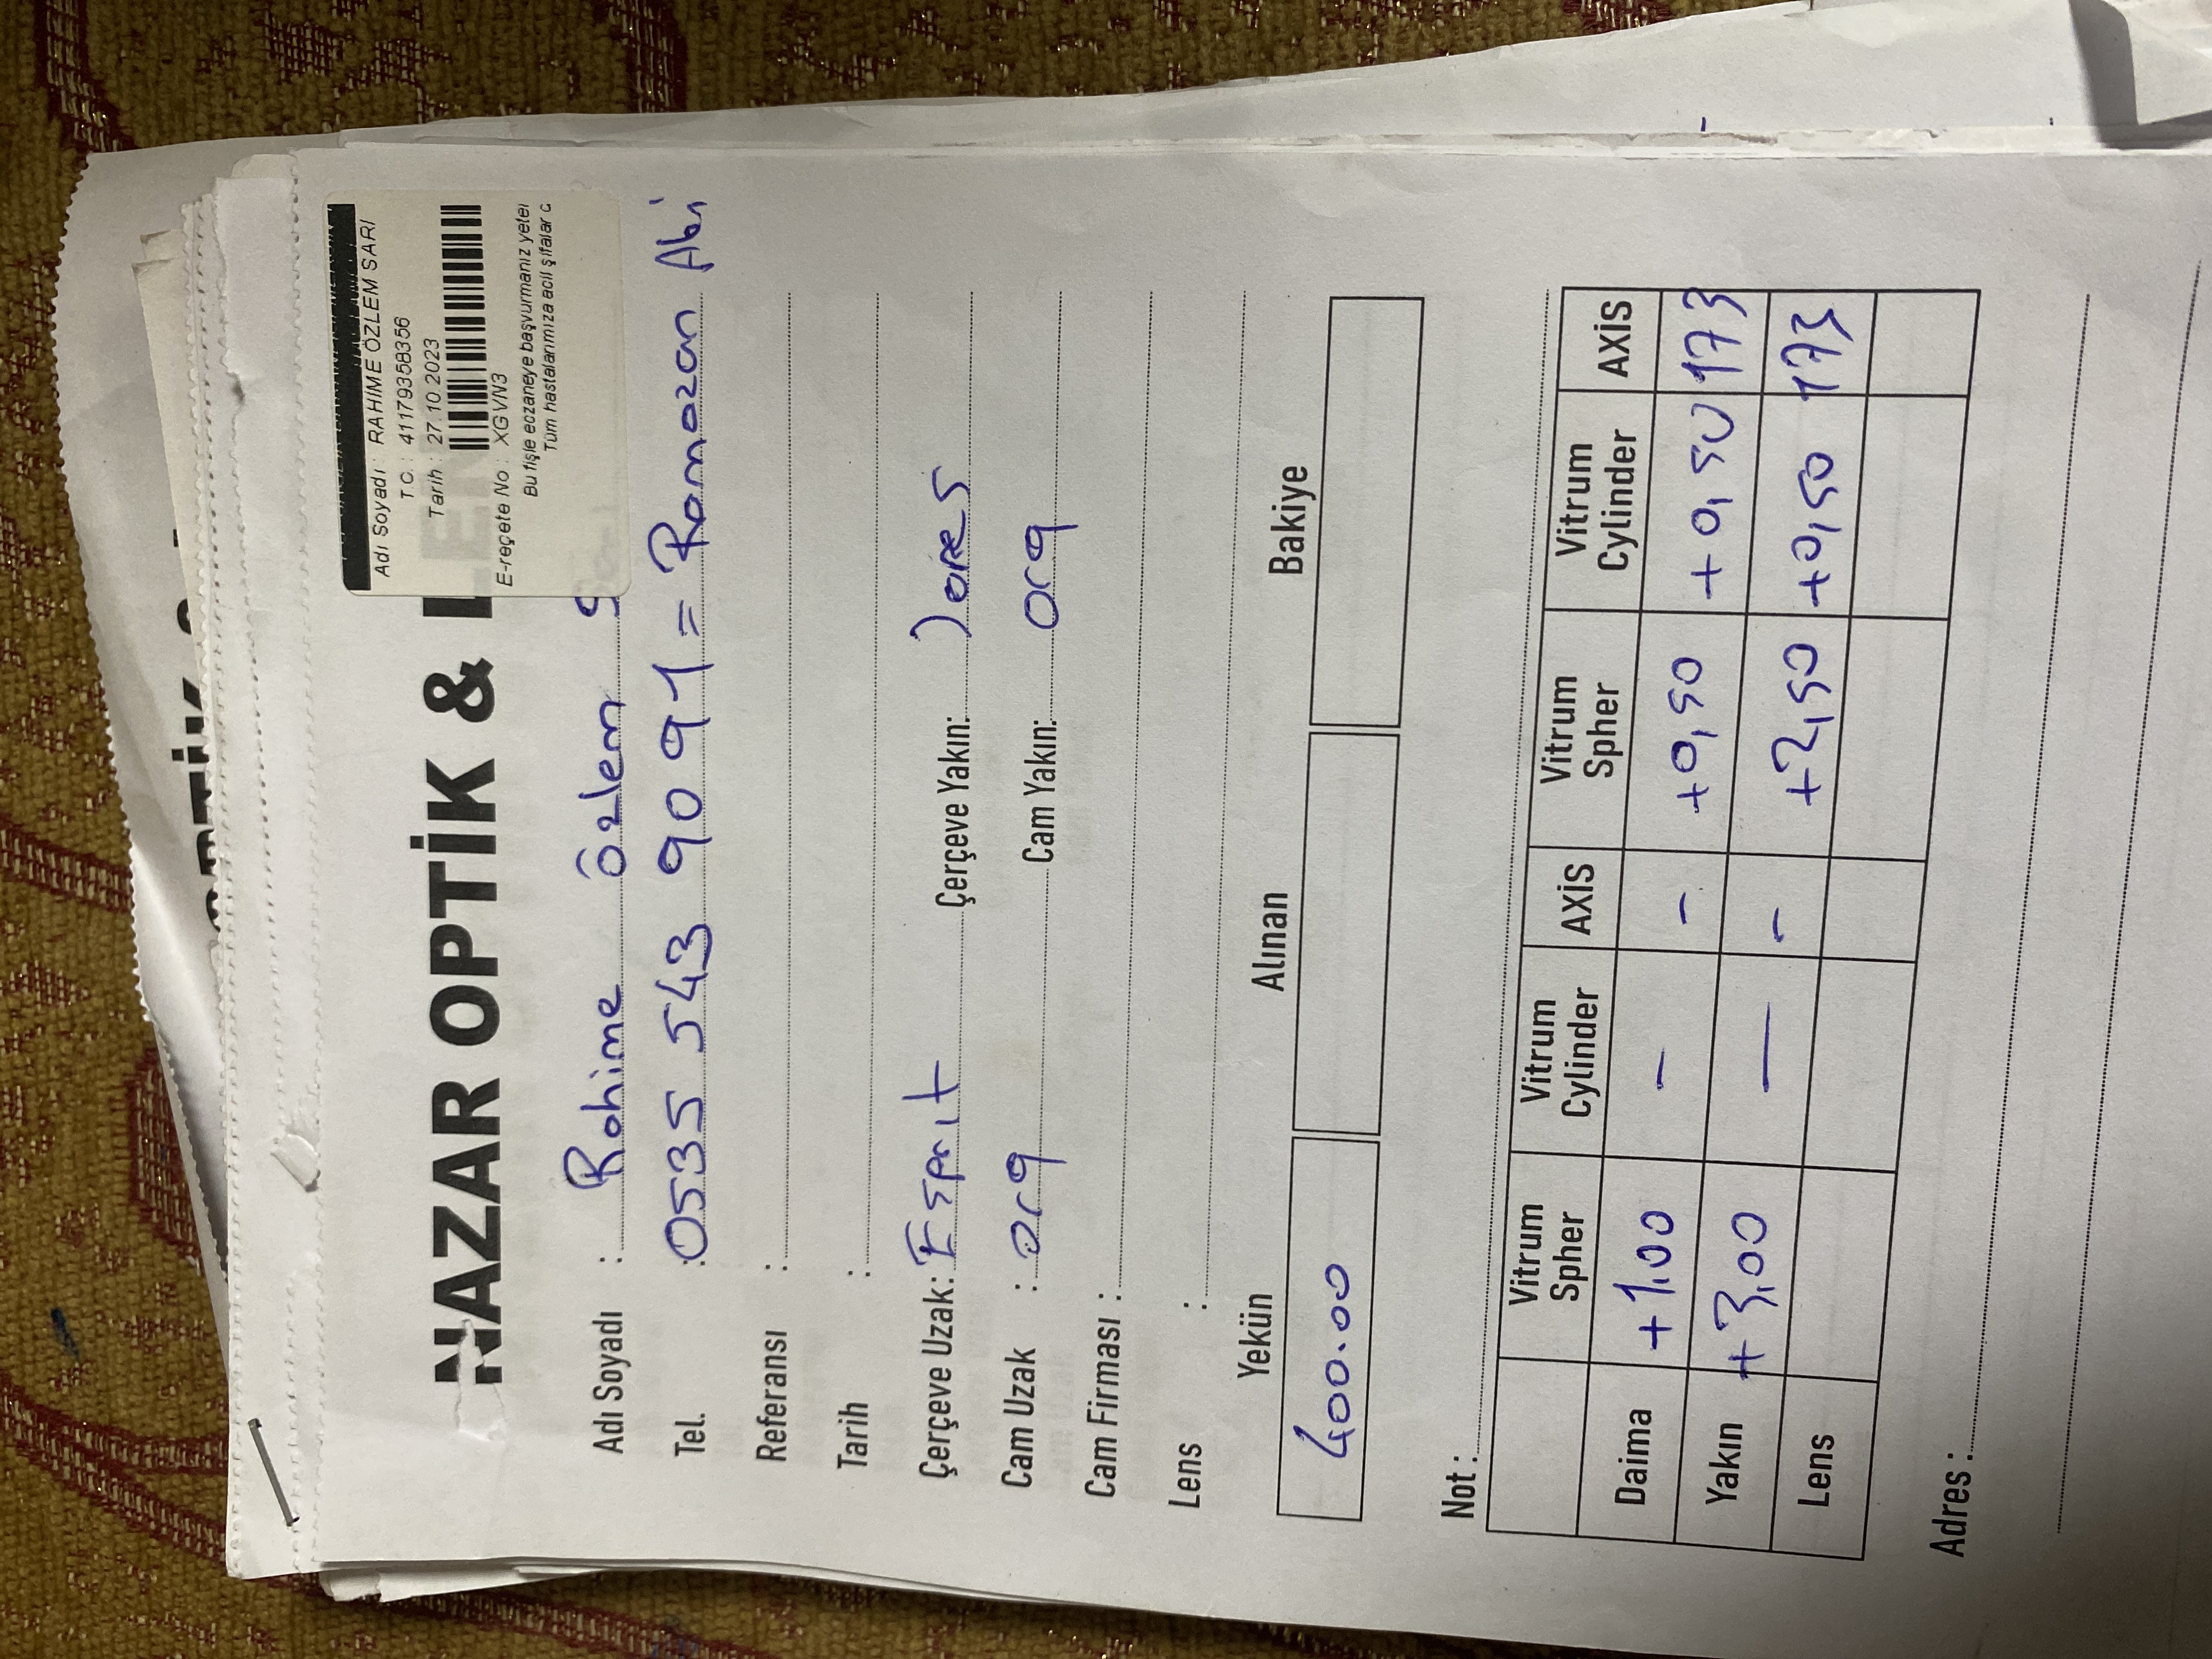 OPTİK &
NAZAR OPTİK & LEN
Adı Soyadı : RAHİME ÖZLEM SARI
T.C. : 41179358356
Tarih : 27.10.2023
E-reçete No : XGVN3
Bu fişle eczaneye başvurmanız yeter
Tüm hastalarımıza acil şifalar d
Adı Soyadı : Rahime Özlem S
Tel. : 0535 543 90 91 = Ramazan Abi
Referansı :
Tarih :
Çerçeve Uzak: Esprit Çerçeve Yakın: Jones
Cam Uzak : org Cam Yakın: org
Cam Firması :
Lens :
Yekün Alınan Bakiye
400.00
Not :
Vitrum Spher Vitrum Cylinder AXİS Vitrum Spher Vitrum Cylinder AXİS
Daima +1.00 - - +0,50 +0,50 173
Yakın +3,00 - - +2,50 +0,50 173
Lens
Adres :